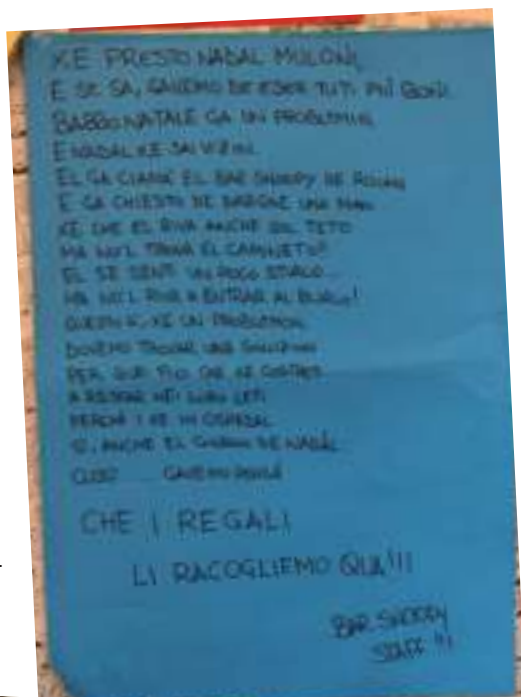 XE PRESTO NADAL MULONI,
E SE SA, GAVEMO DE ESER TUTI PIÙ BONI.
BABBO NATALE GA UN PROBLEMIN,
E NADAL XE SAI VIZIN.
EL GA CIAMÀ EL BAR SNOOPY DE
E GA CHIESTO DE DARGHE UNA MAN
XE CHE EL RIVA ANCHE SUL TETO
MA NO'L TROVA EL CAMINETO!!
EL SE SENTI UN POCO STRACO...
MA NO'L RIVA A ENTRAR AL BUCO!
QUESTO XE UN PROBLEMON
DOVEMO TROVAR UNA SOLUZION
PER QUEI FIOI CHE XE COSTRETI
A RESTAR NEI LORO LETI
PERCHÈ I XE IN OSPEDAL
SI, ANCHE EL GIORNO DE NADAL
GAVEMO
CHE I REGALI
LI RACOGLIEMO QUA!!!
BAR SNOOPY
STAFF !!!